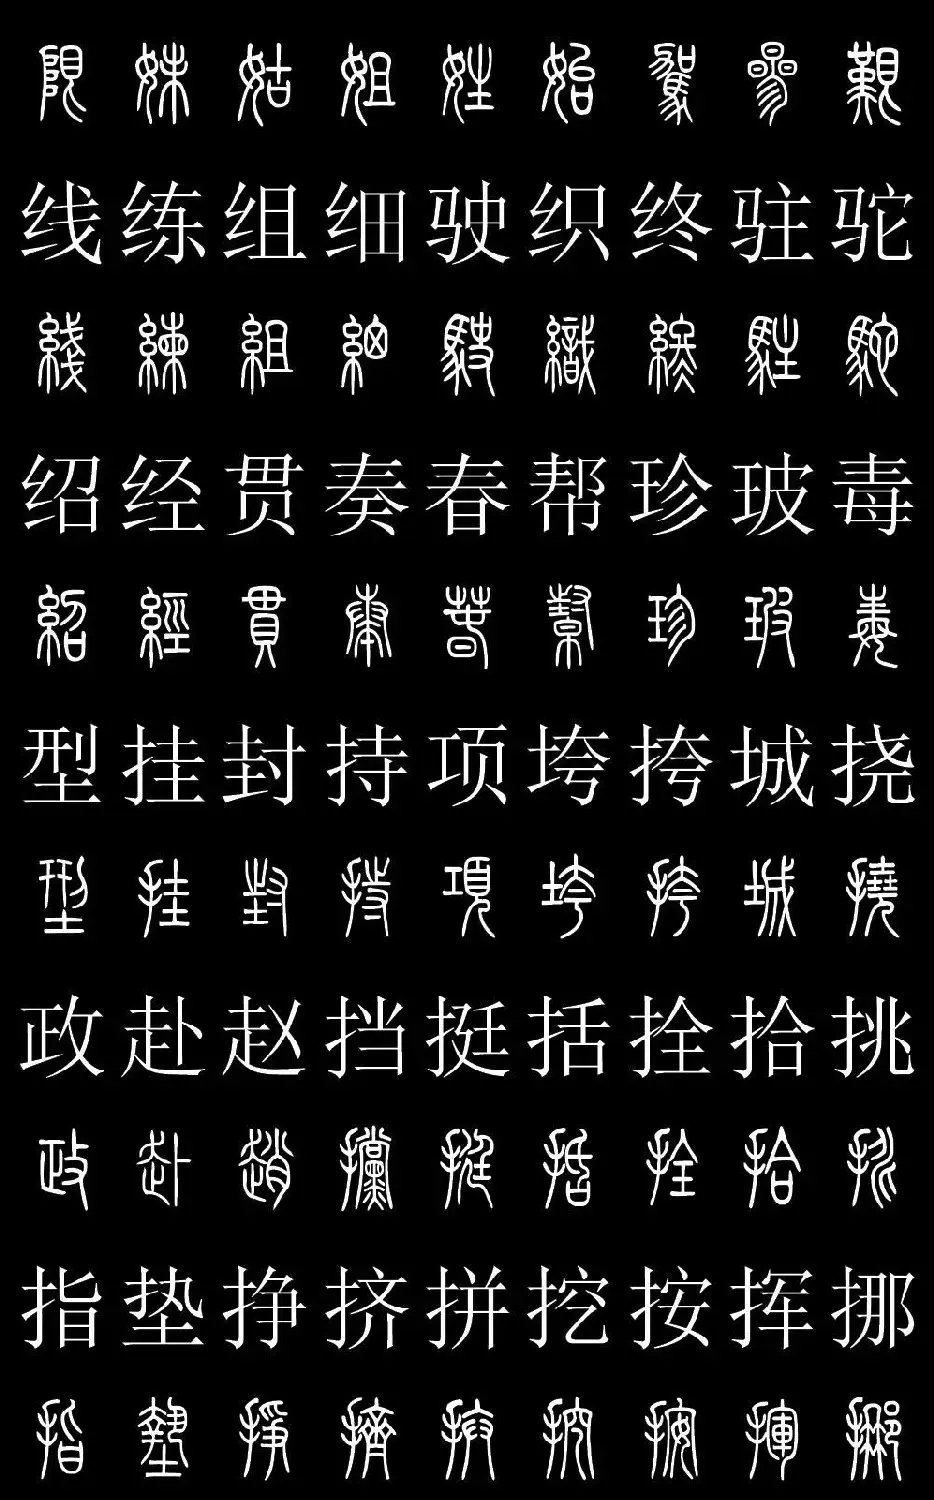 限妹姑姐姓始駕參艱
线练组细驶织终驻驼
綫練組細駛織終駐駝
绍经贯奏春帮珍玻毒
紹經貫奏春珍玻毒
型挂封持项垮挎城挠
型挂封持項垮挎城撓
政赴赵挡挺括拴拾挑
政赴趙攩挺括拴拾挑
指垫挣挤拼挖按挥挪
指墊掙擠拼挖按揮挪